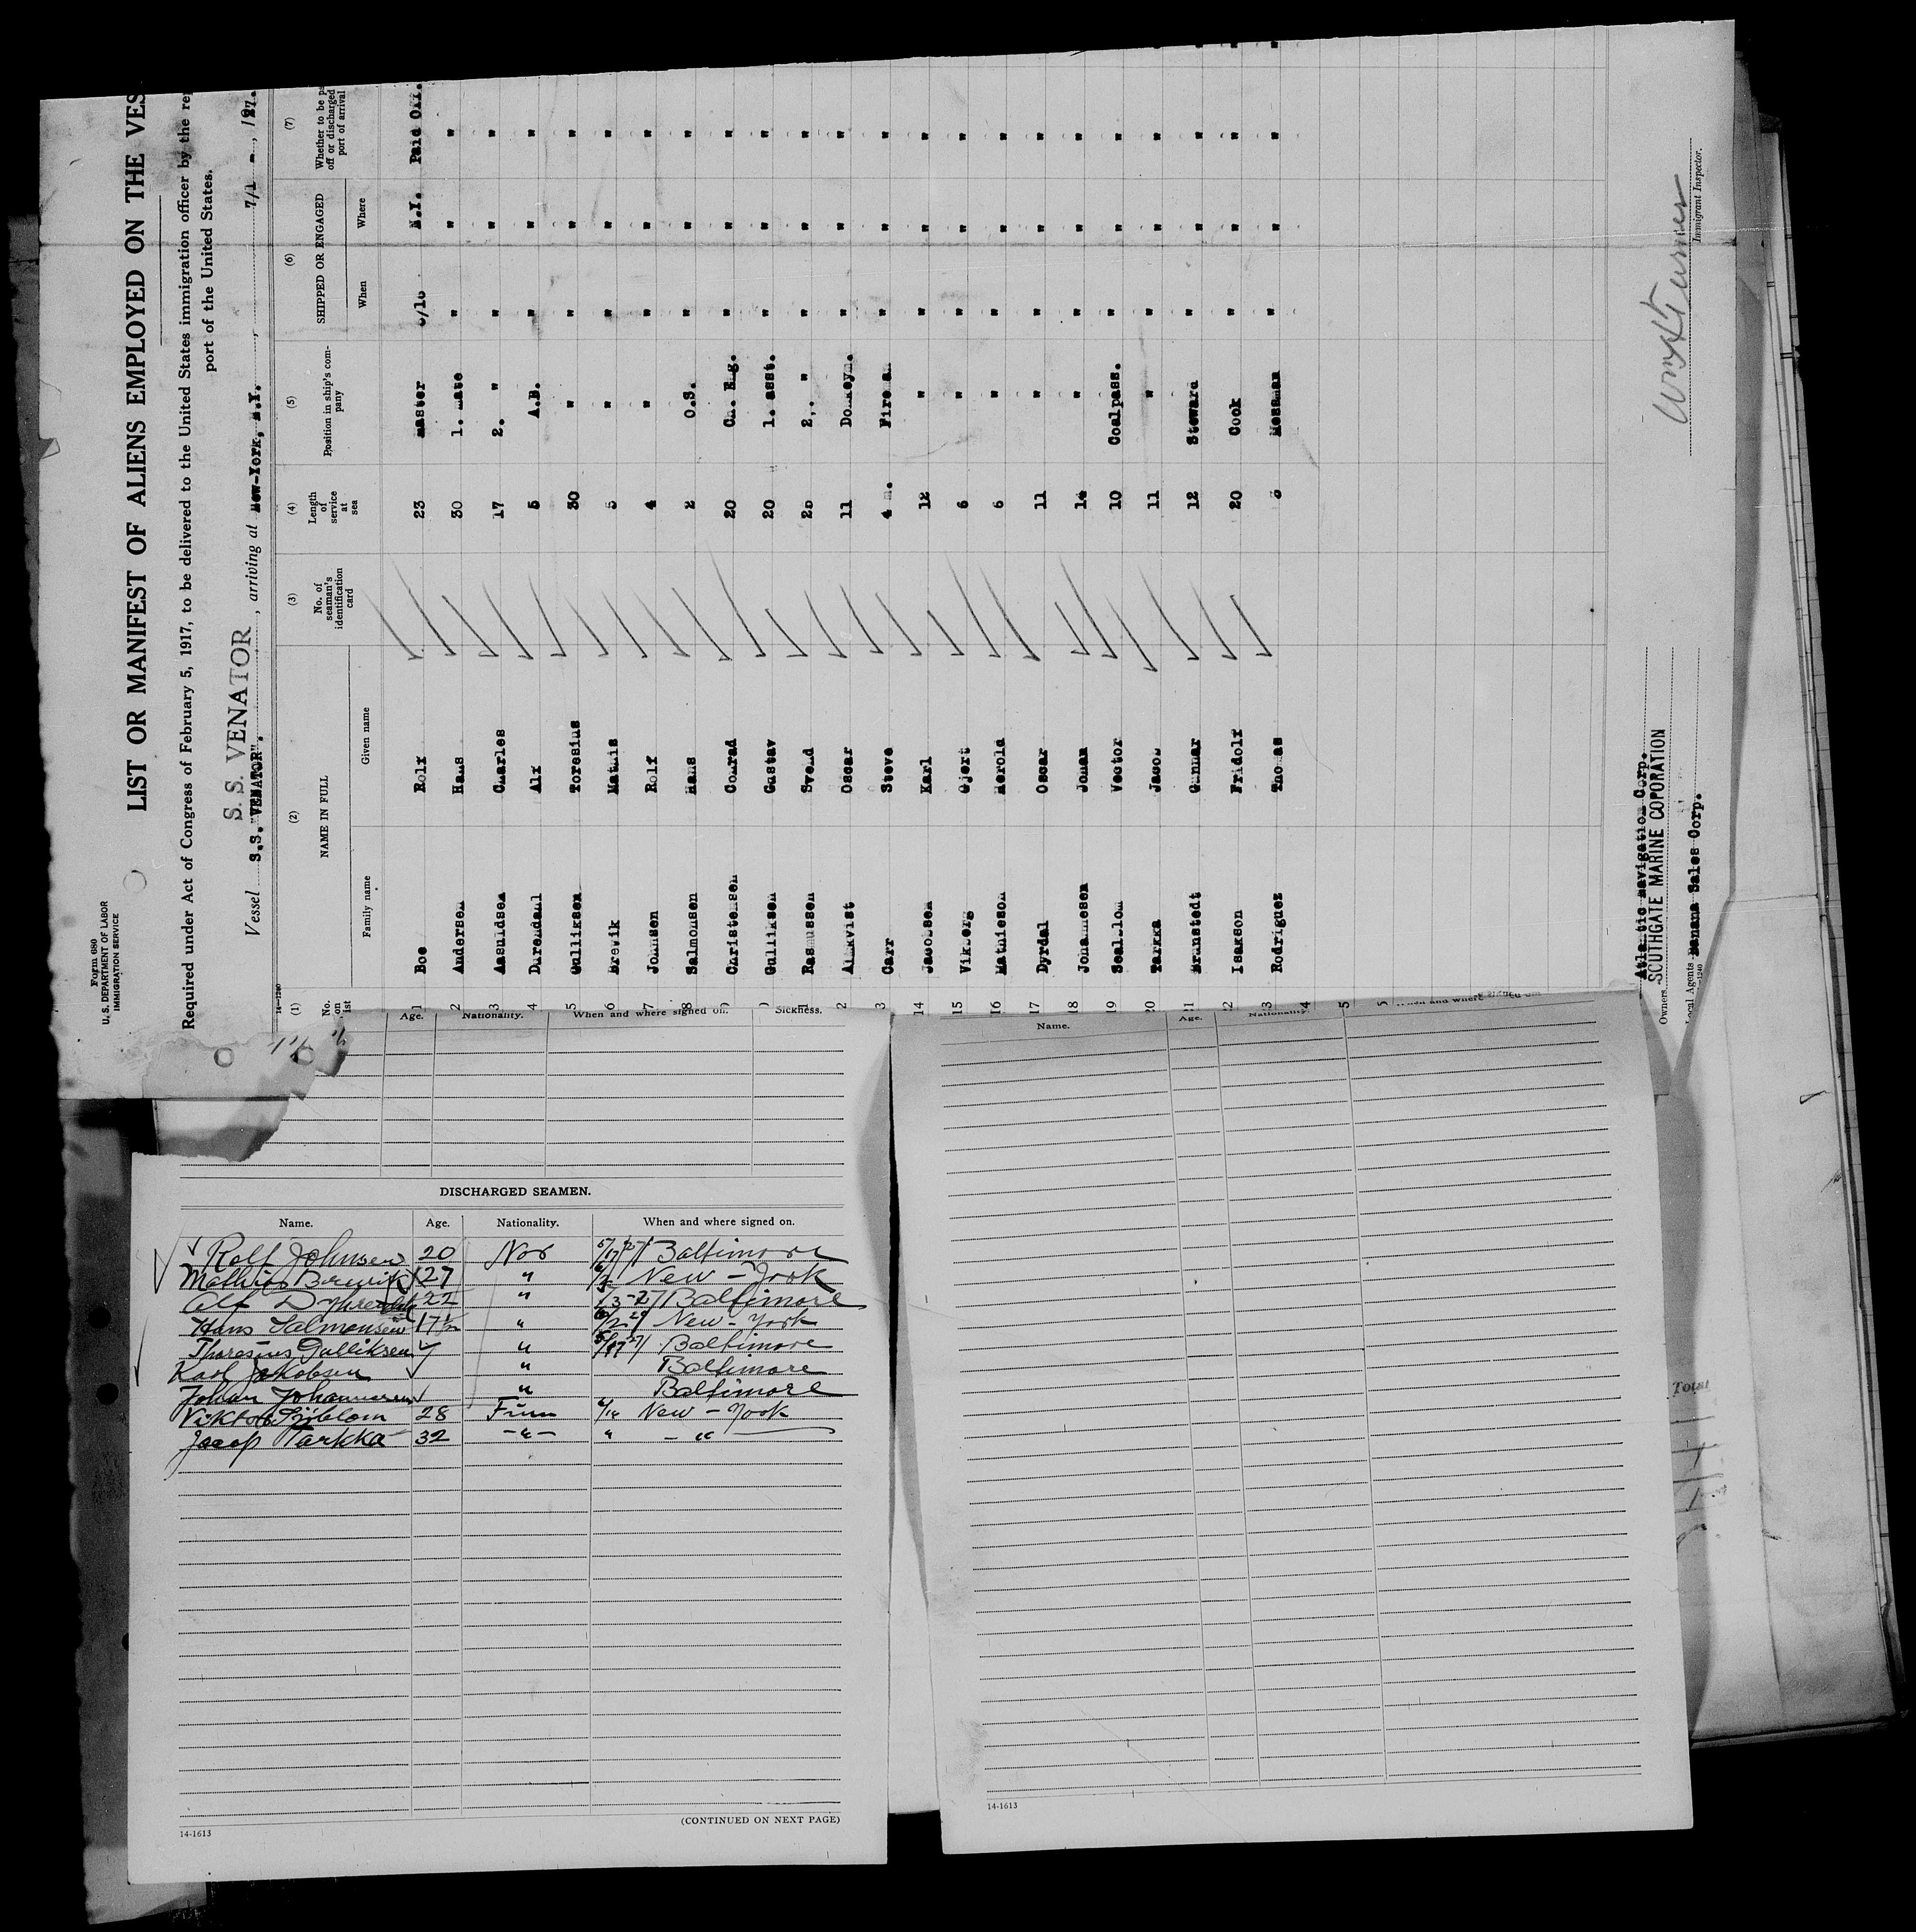 Form 680
U. S. DEPARTMENT OF LABOR
IMMIGRATION SERVICE
LIST OR MANIFEST OF ALIENS EMPLOYED ON THE VES
Required under Act of Congress of February 5, 1917, to be delivered to the United States immigration officer by the re
port of the United States.
S. S. VENATOR
Vessel S.S. "VENATOR". , arriving at New-York, N.Y. , 7/1 - , 1927.
14-1240
(1) (2) (3) (4) (5) (6) (7)
No. on list NAME IN FULL No. of seaman's identification card Length of service at sea Position in ship's company SHIPPED OR ENGAGED Whether to be pa off or discharged port of arrival
Family name Given name When Where
1 Boe Rolf 23 Master 6/16 N.Y. Paid Off.
2 Andersen Hans 30 1. Mate " " "
3 Aasuldsen Charles 17 2. " " " "
4 Durendahl Alf 5 A.B. " " "
5 Gulliksen Toresius 30 " " " "
6 Brevik Mathis 5 " " " "
7 Johnsen Rolf 4 " " " "
8 Salmonsen Hans 2 O.S. " " "
9 Christensen Conrad 20 Ch. Eng. " " "
0 Gulliksen Gustav 20 1. asst. " " "
1 Rasmussen Svend 25 2. " " " "
2 Almkvist Oscar 11 Donkeym. " " "
3 Carr Steve 4 m. Fireman " " "
14 Jacobsen Karl 12 " " " "
15 Vikberg Gjert 6 " " " "
16 Mathieson Harold 6 " " " "
17 Dyrdal Oscar 11 " " " "
18 Johannesen Johan 14 " " " "
19 Seablom Vector 10 Coalpass. " " "
20 Tarkka Jacob 11 " " " "
21 Brunstedt Gunnar 12 Steward " " "
22 Isakson Fridolf 20 Cook " " "
3 Rodriguez Thomas Messman " " "
4
5
Atlantic Navigation Corp.
Owners SOUTHGATE MARINE COPORATION
Local Agents Banana Sales Corp.
Immigrant Inspector.
Age. Nationality. When and where signed on. Sickness.
DISCHARGED SEAMEN.
Name. Age. Nationality. When and where signed on.
Rolf Johnsen 20 Nor 5/17 27 Baltimore
Mathias Brevik 27 " New-York
Alf 22 " Baltimore
Hans Salmonsen 17½ " New-York
Thoresius Gulliksen " Baltimore
Karl Jakobsen " Baltimore
Johan Johannesen " Baltimore
Viktor Sjöblom 28 Finn New-York
Jacop Tarkka 32 -"- " -"
(CONTINUED ON NEXT PAGE)
14-1613
Name. Age. Nationality. When and where signed on.
14-1613
Total